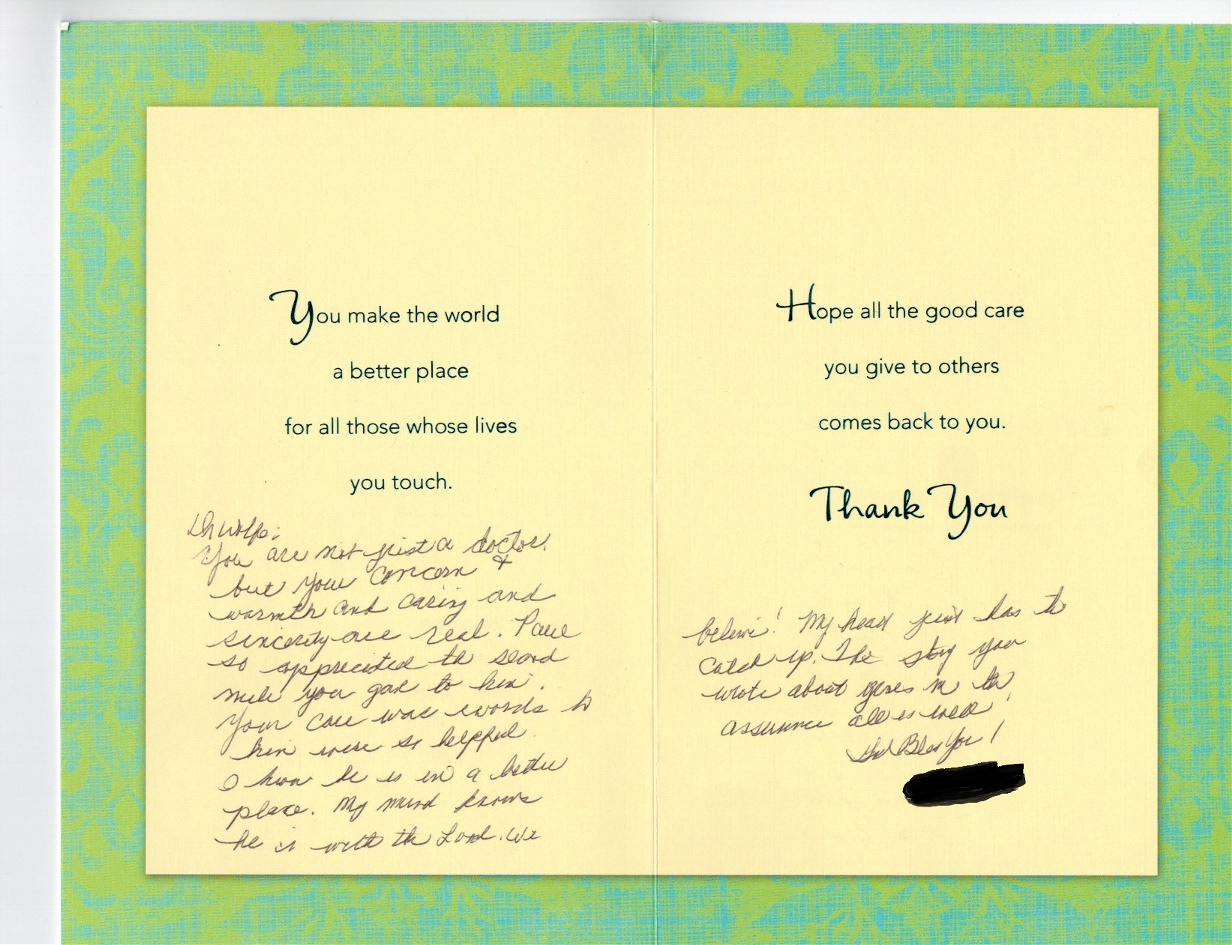 You make the world
a better place
for all those whose lives
you touch.
Dr Wolfe:
You are not just a doctor.
but your concern &
warmth and caring and
sincerity are real. Paul
so appreciated the second
mile you gave to him.
Your care and words to
him were so helpful.
I know he is in a better
place. My mind knows
he is with the Lord. We
Hope all the good care
you give to others
comes back to you.
Thank You
believe! My head just has to
catch up. The story you
wrote about gives me the
assurance all is well.
God Bless You!